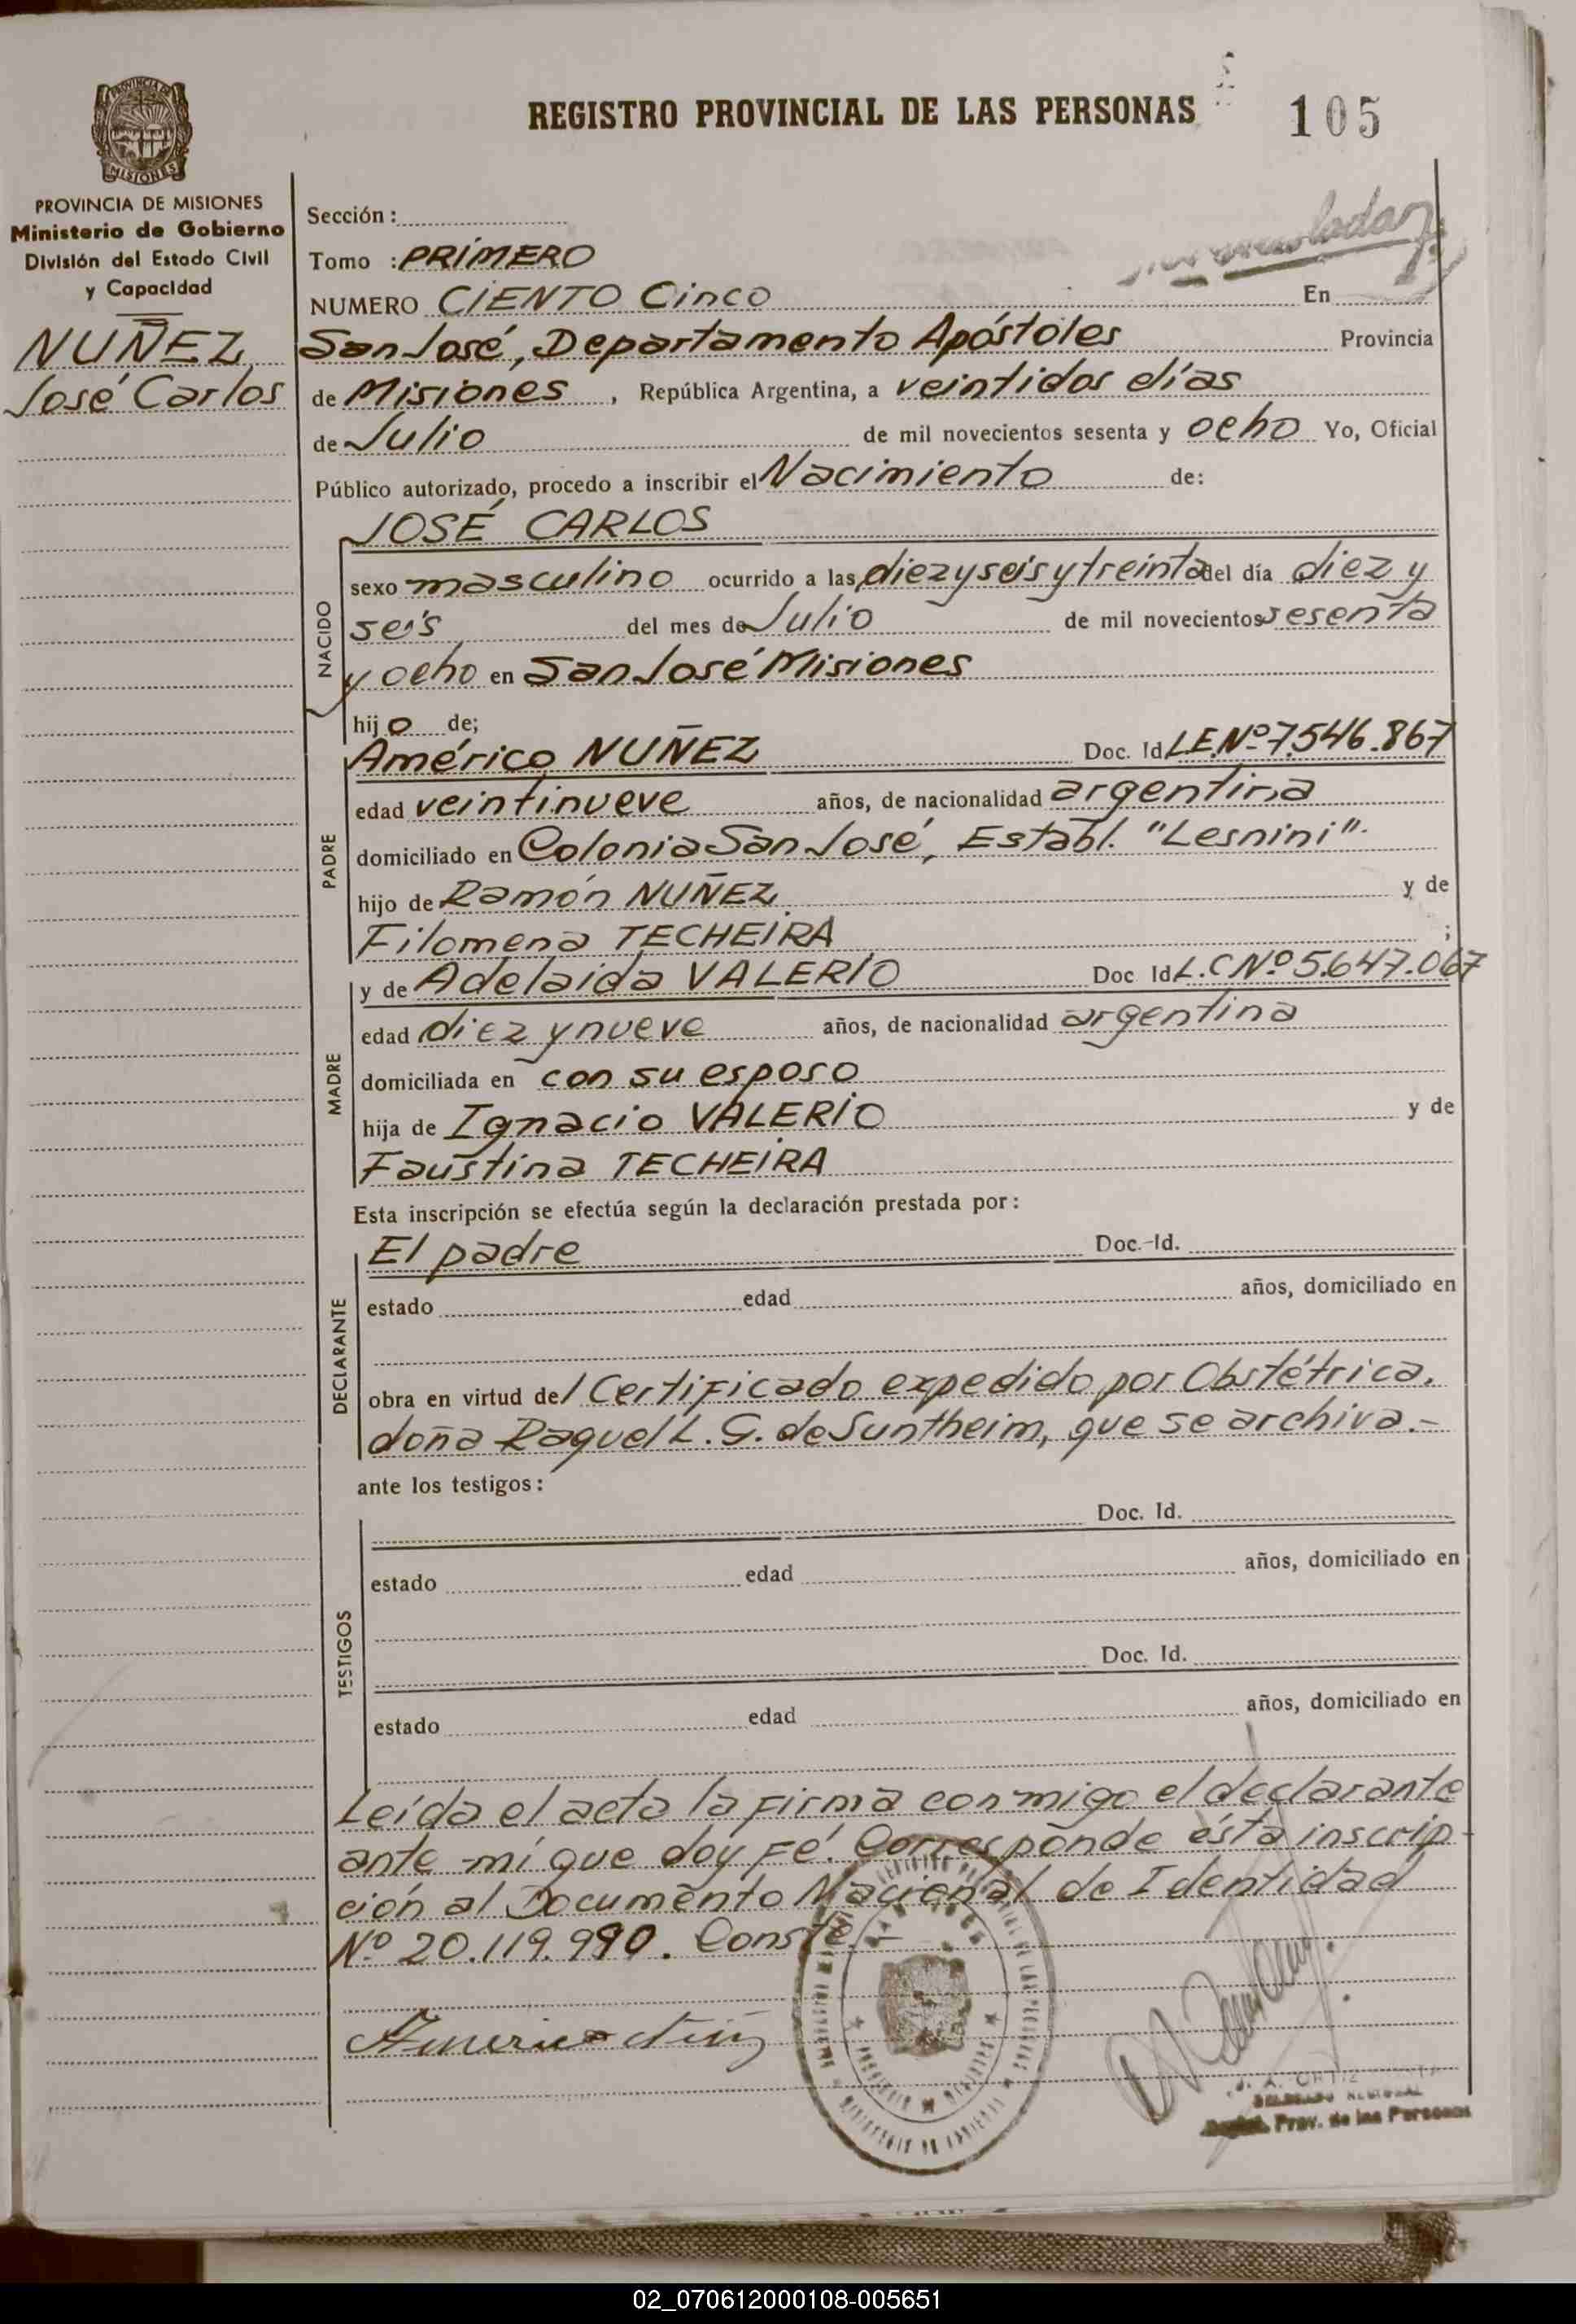 REGISTRO PROVINCIAL DE LAS PERSONAS
105
PROVINCIA DE MISIONES
MISIONES
PROVINCIA DE MISIONES
Ministerio de Gobierno
División del Estado Civil
y Capacidad
NUÑEZ,
José Carlos
Sección :
Tomo : PRIMERO
NUMERO CIENTO Cinco En
San José, Departamento Apóstoles Provincia
de Misiones , República Argentina, a veintidos días
de Julio de mil novecientos sesenta y ocho Yo, Oficial
Público autorizado, procedo a inscribir el Nacimiento de:
JOSÉ CARLOS
NACIDO
sexo masculino ocurrido a las diez y seis y treinta del día diez y
seis del mes de Julio de mil novecientos sesenta
y ocho en San José Misiones
hijo de;
PADRE
Américo NUÑEZ Doc. Id L.E.Nº 7.546.867
edad veintinueve años, de nacionalidad argentina
domiciliado en Colonia San José, Establ. "Lesnini".
hijo de Ramón NUÑEZ y de
Filomena TECHEIRA ;
MADRE
y de Adelaida VALERIO Doc Id L.C Nº 5.647.067
edad diez y nueve años, de nacionalidad argentina
domiciliada en con su esposo
hija de Ignacio VALERIO y de
Faustina TECHEIRA
Esta inscripción se efectúa según la declaración prestada por :
DECLARANTE
El padre Doc.-Id.
estado edad años, domiciliado en
obra en virtud del Certificado expedido por Obstétrica,
doña Raquel L. G. de Suntheim, que se archiva.-
ante los testigos :
TESTIGOS
Doc. Id.
estado edad años, domiciliado en
Doc. Id.
estado edad años, domiciliado en
Leída el acta la firma conmigo el declarante
ante mí que doy fé. Corresponde ésta inscrip-
ción al Documento Nacional de Identidad
Nº 20.119.990. Conste.-
Americo
J. A. ORTIZ
DELEGADO REGIONAL
Regist. Prov. de las Personas
02_070612000108-005651